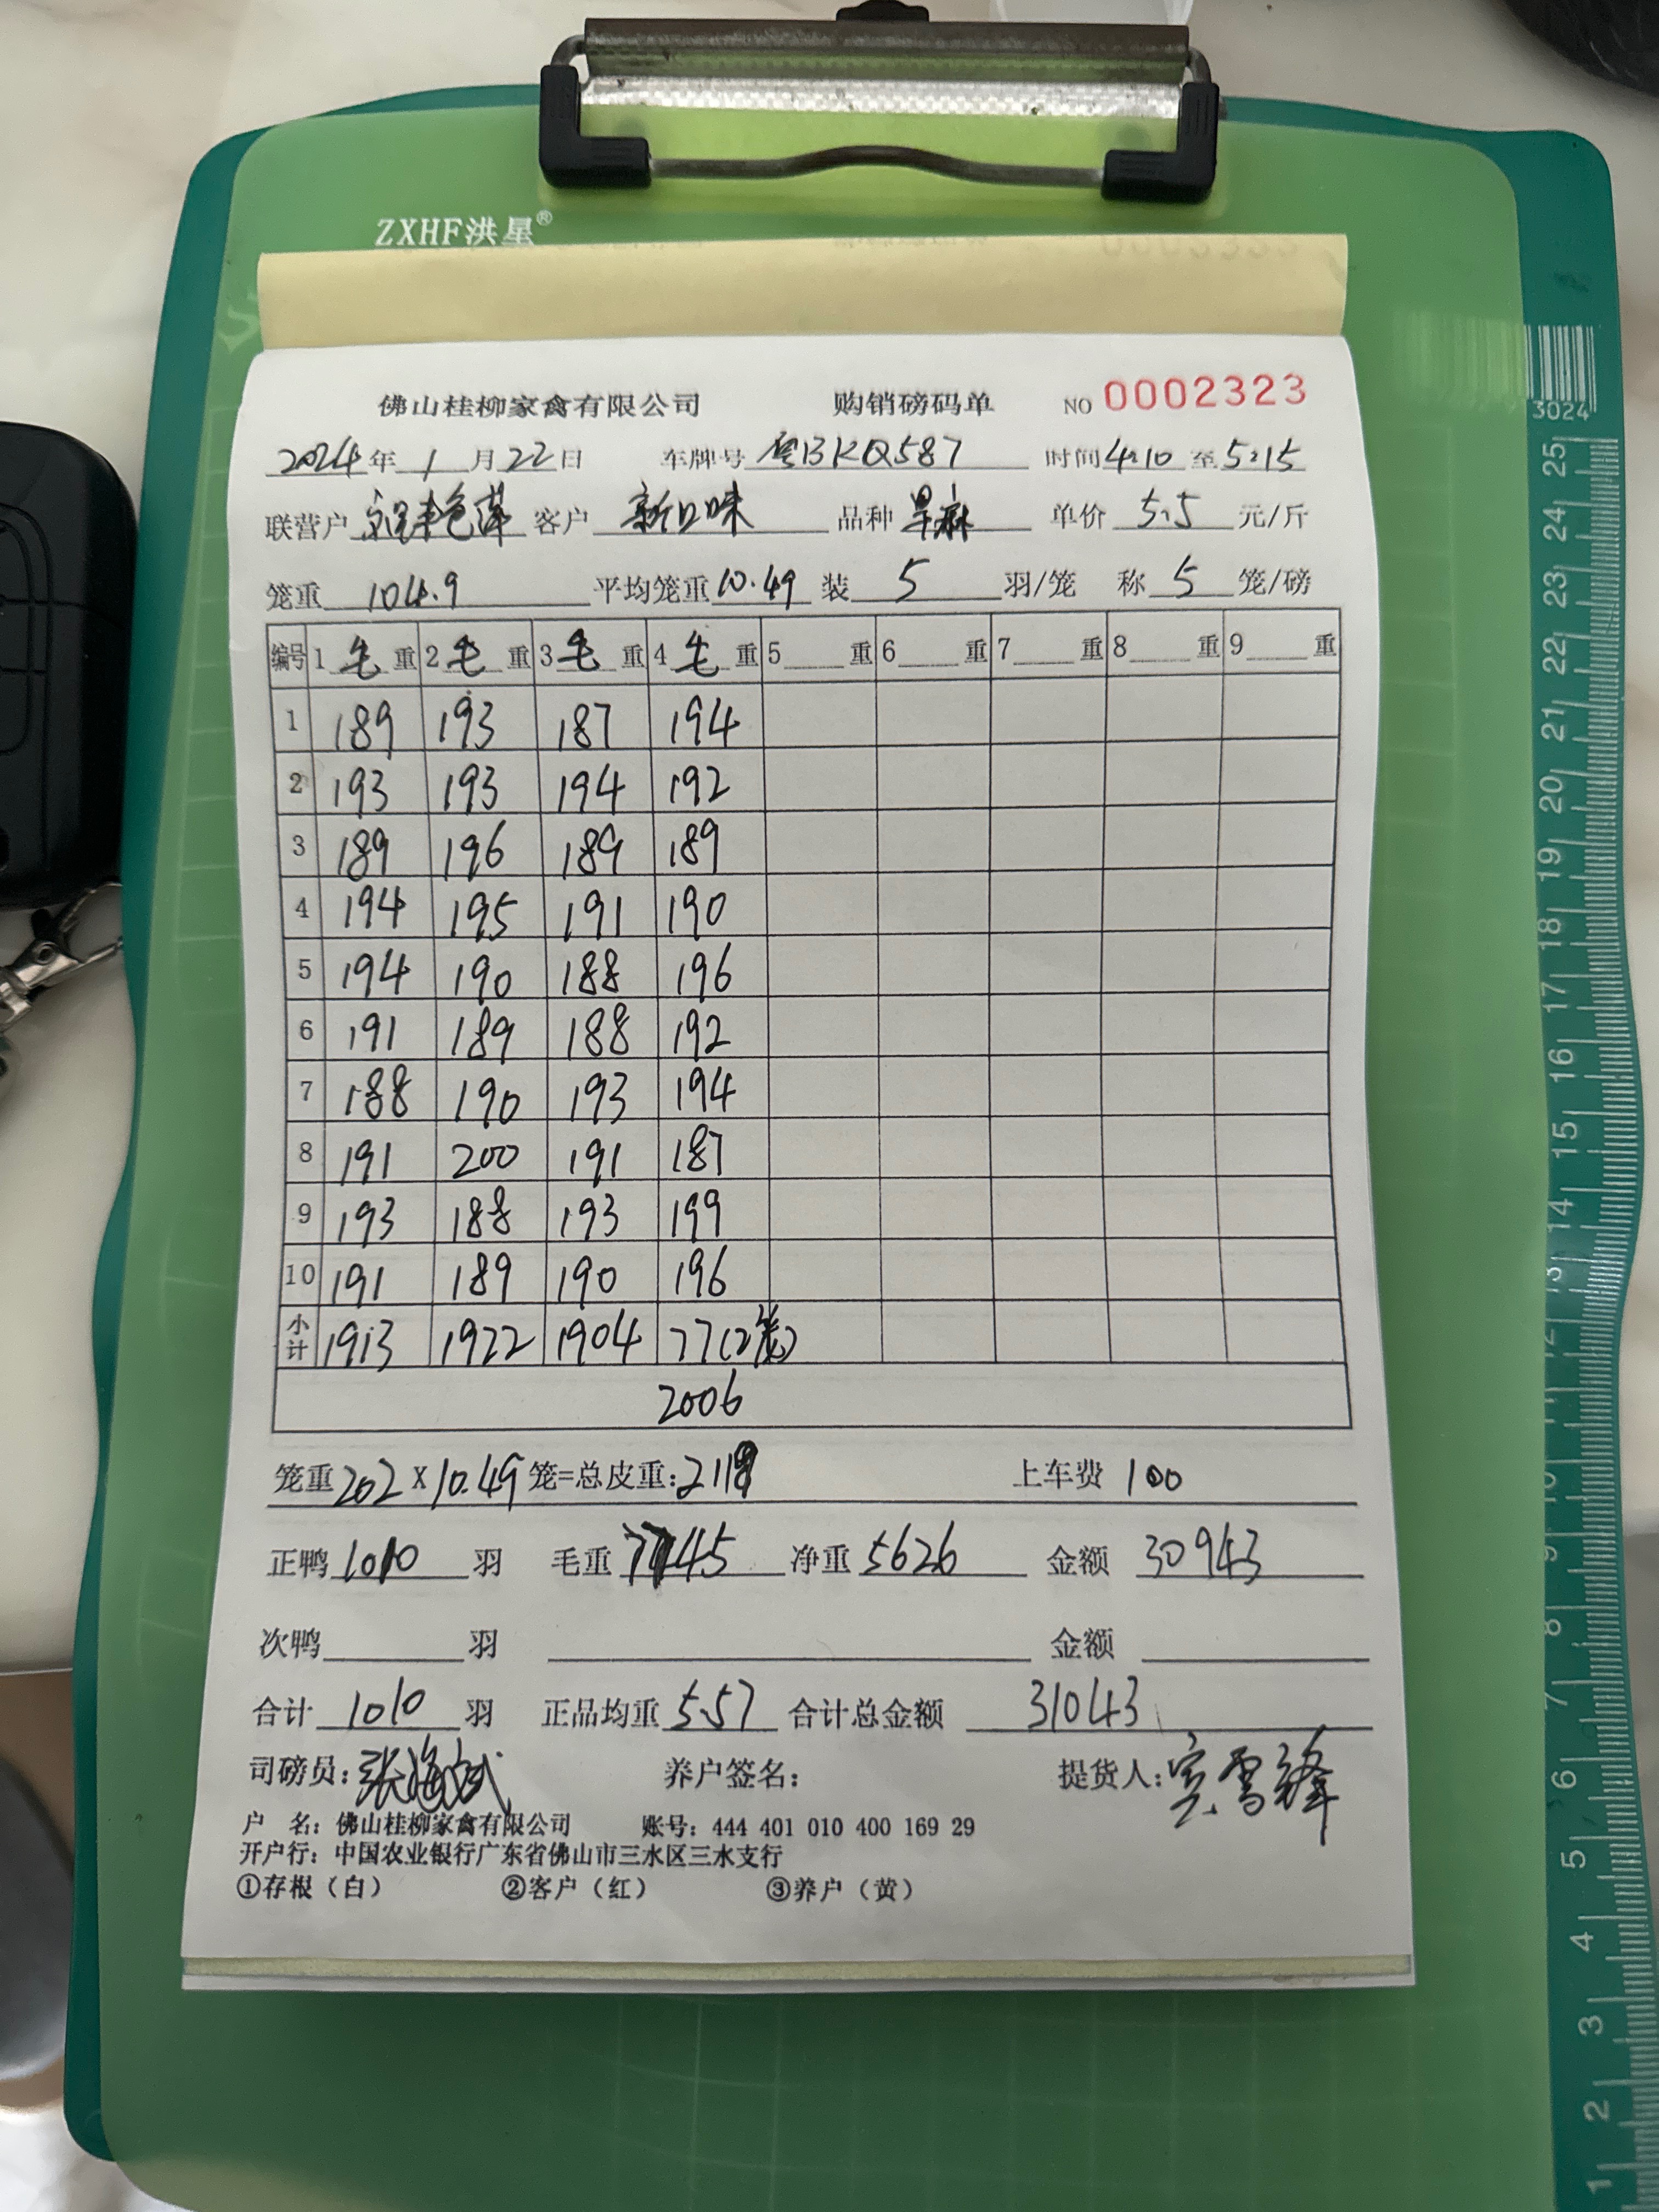 ZXHF洪星®
佛山桂柳家禽有限公司 购销磅码单 NO 0002323
2024年1月22日 车牌号 粤BKQ587 时间4:10至5:15
联营户 客户 新口味 品种 旱麻 单价 5.5 元/斤
笼重 104.9 平均笼重10.49 装 5 羽/笼 称 5 笼/磅
编号 1 毛 重 2 毛 重 3 毛 重 4 毛 重 5 重 6 重 7 重 8 重 9 重
1 189 193 187 194
2 193 193 194 192
3 189 196 189 189
4 194 195 191 190
5 194 190 188 196
6 191 189 188 192
7 188 190 193 194
8 191 200 191 187
9 193 188 193 199
10 191 189 190 196
小计 1913 1922 1904 77(2笼)
2006
笼重202×10.49笼=总皮重:2119 上车费 100
正鸭1010羽 毛重7745 净重5626 金额 30943
次鸭 羽 金额
合计 1010 羽 正品均重 5.57 合计总金额 31043
司磅员: 养户签名: 提货人:
户 名: 佛山桂柳家禽有限公司 账号: 444 401 010 400 169 29
开户行: 中国农业银行广东省佛山市三水区三水支行
①存根（白） ②客户（红） ③养户（黄）
3024
25
24
23
22
21
20
19
18
17
16
15
14
13
12
11
10
9
8
7
6
5
4
3
2
1